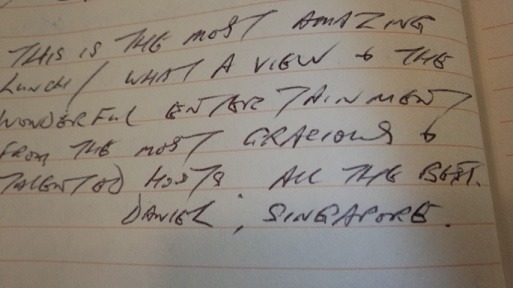 THIS IS THE MOST AMAZING
LUNCH/ WHAT A VIEW & THE
WONDERFUL ENTERTAINMENT
FROM THE MOST GRACIOUS &
TALENTED HOSTS. ALL THE BEST.
DANIEL, SINGAPORE.